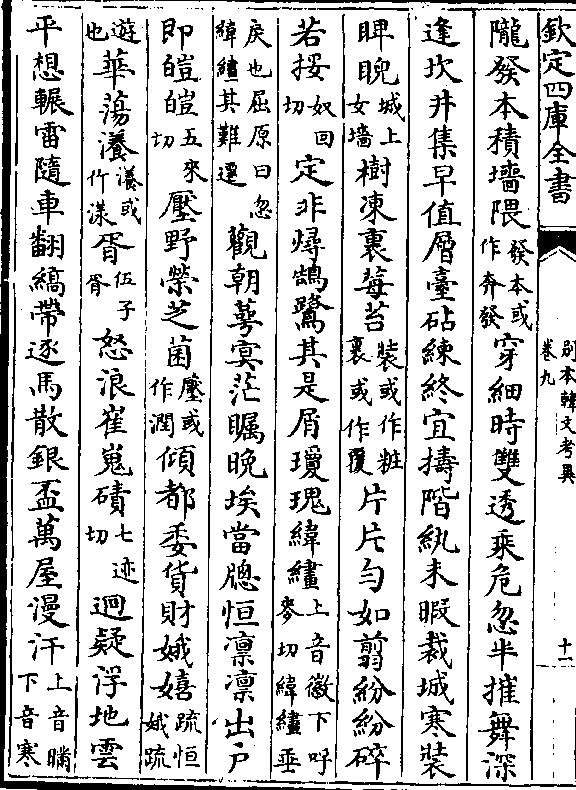 欽定四庫全書 别本韓文考異 卷九 十一
隴發本積墻隈發本或作奔發穿細時雙透乘危忽半摧舞深
逢坎井集早值層臺砧練終宜擣階紈未暇裁城寒裝
睥睨城上女墻樹凍裹莓苔裝或作粧裹或作覆片片勻如翦紛紛碎
若挼奴回切定非燖鵠鷺其是屑瓊瑰緯繣上音徽下呼麥切緯繣乖
戾也屈原曰忽緯繣其難遷觀朝萼㝠茫矚晚埃當牕恒凛凛出戶
即皚皚五來切壓野榮芝菌壓或作潤傾都委貨財娥嬉疏恒娥疏
遊也華蕩瀁瀁或作漾胥伍子胥怒浪崔嵬磧七迹切迥疑浮地雲
平想輾雷隨車翻縞帶逐馬散銀盃萬屋漫汗上音瞞下音寒